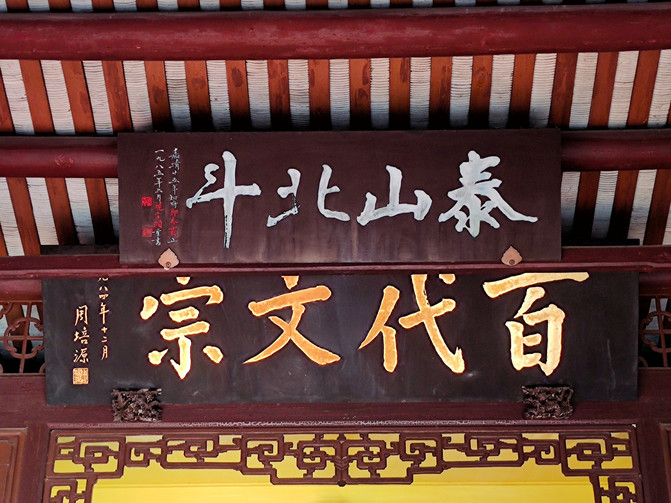 泰山北斗
一九八五年三月
百代文宗
九八四年十二月
周培源